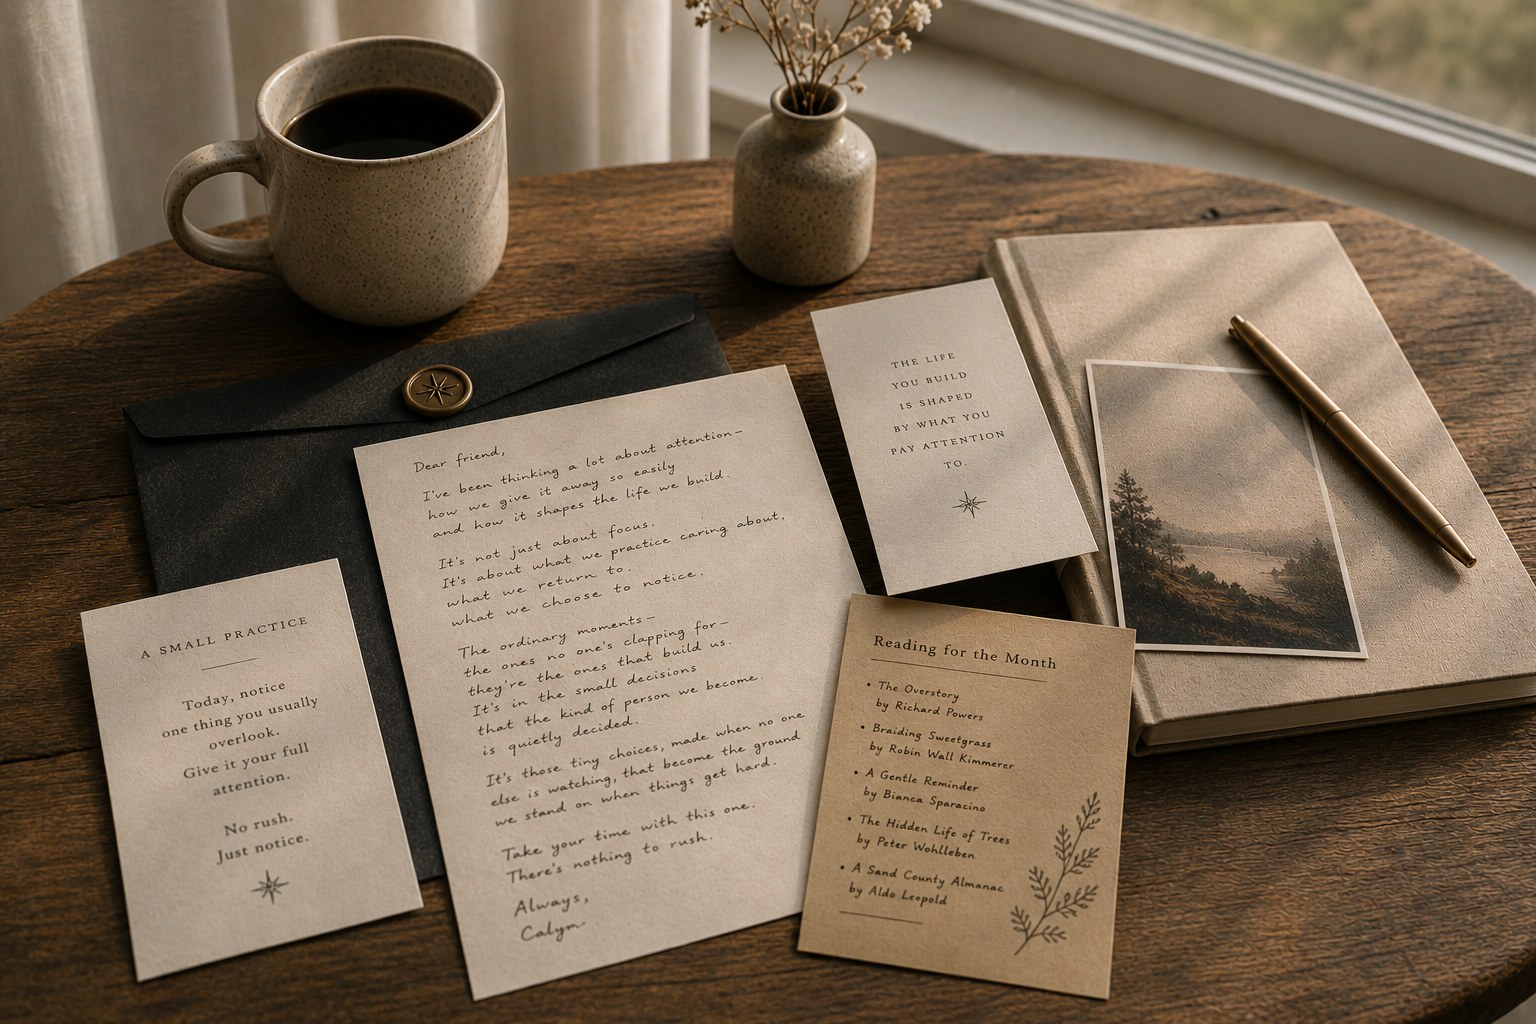 Dear friend,
I've been thinking a lot about attention—
how we give it away so easily
and how it shapes the life we build.
It's not just about focus.
It's about what we practice caring about,
what we return to.
what we choose to notice.
The ordinary moments—
the ones no one's clapping for—
they're the ones that build us.
It's in the small decisions
that the kind of person we become.
is quietly decided.
It's those tiny choices, made when no one
else is watching, that become the ground
we stand on when things get hard.
Take your time with this one.
There's nothing to rush.
Always,
Calym.
A SMALL PRACTICE
Today, notice
one thing you usually
overlook.
Give it your full
attention.
No rush.
Just notice.
THE LIFE
YOU BUILD
IS SHAPED
BY WHAT YOU
PAY ATTENTION
TO.
Reading for the Month
• The Overstory
by Richard Powers
• Braiding Sweetgrass
by Robin Wall Kimmerer
• A Gentle Reminder
by Bianca Sparacino
• The Hidden Life of Trees
by Peter Wohlleben
• A Sand County Almanac
by Aldo Leopold